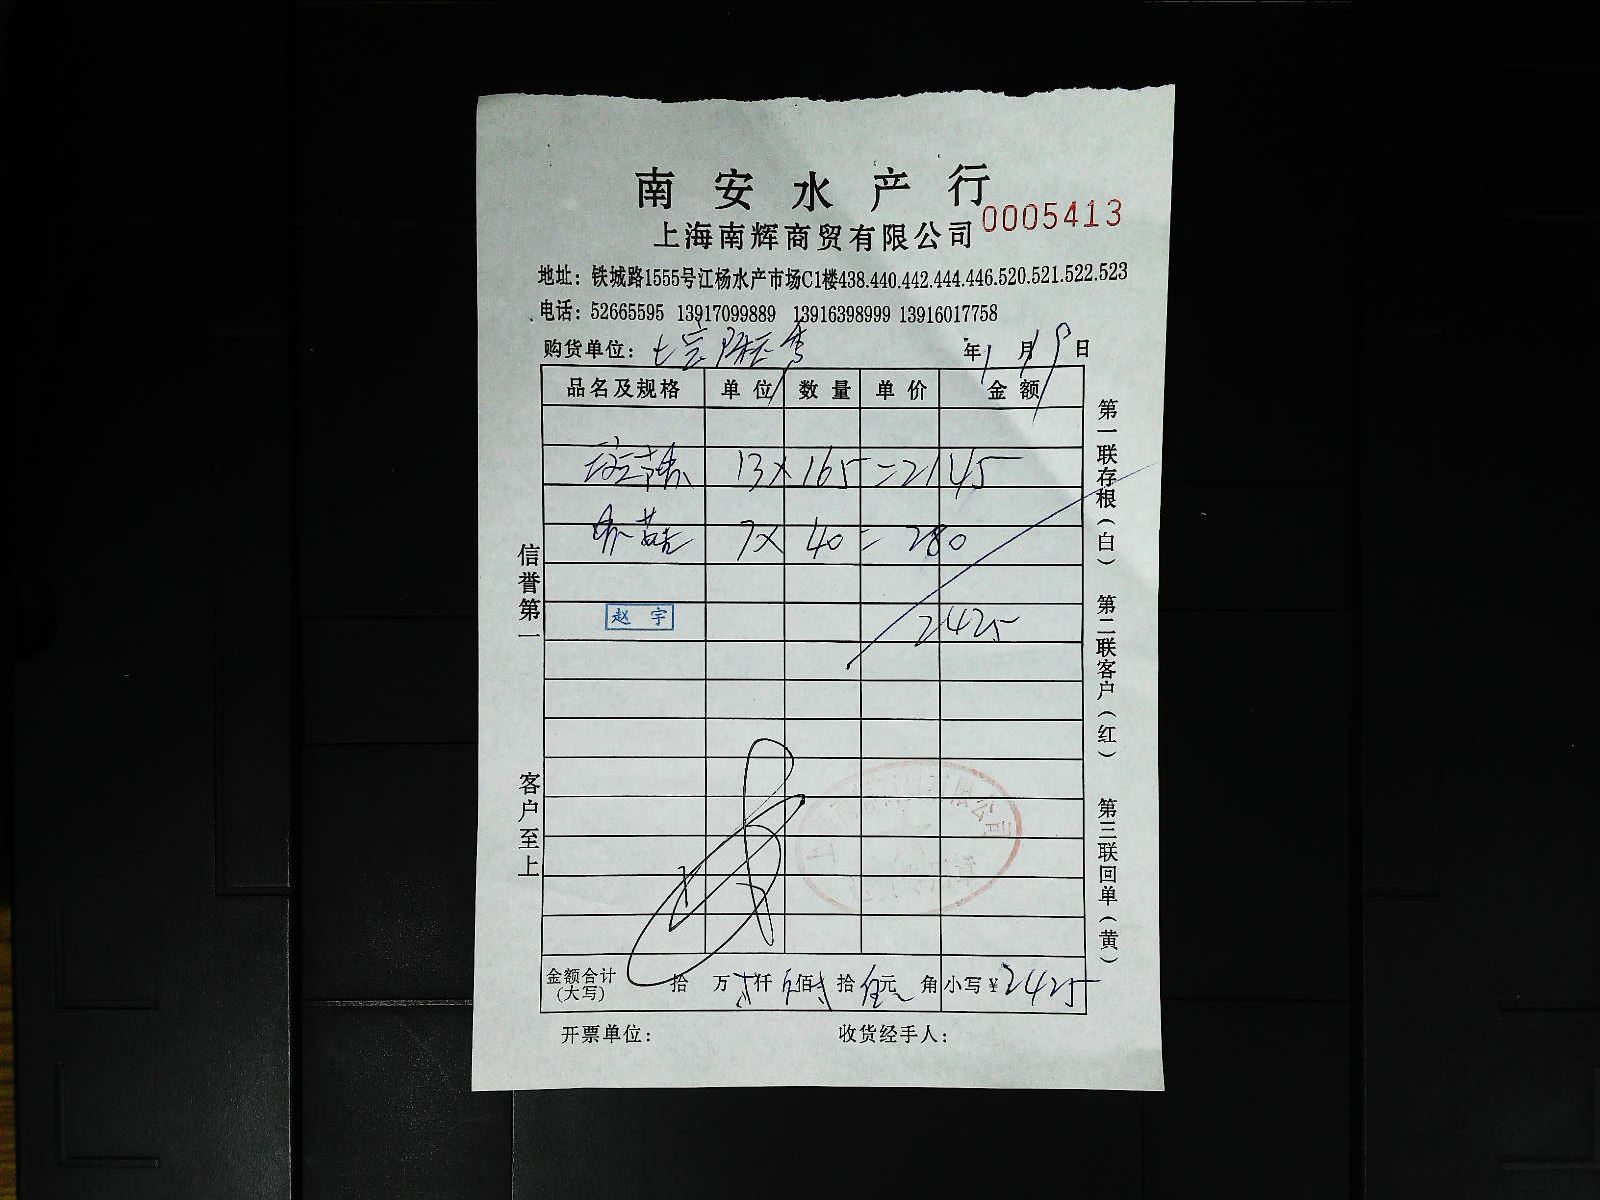 南安水产行
上海南辉商贸有限公司 0005413
地址：铁城路1555号江杨水产市场C1楼438.440.442.444.446.520.521.522.523
电话：52665595 13917099889 13916398999 13916017758
购货单位： 年1月19日
品名及规格 单位 数量 单价 金额
13×165=2145
7×40=280
赵宇
2425
金额合计(大写) 拾 万 仟 佰 拾 伍元 角 小写￥2425
开票单位： 收货经手人：
信誉第一
客户至上
第一联存根(白)
第二联客户(红)
第三联回单(黄)